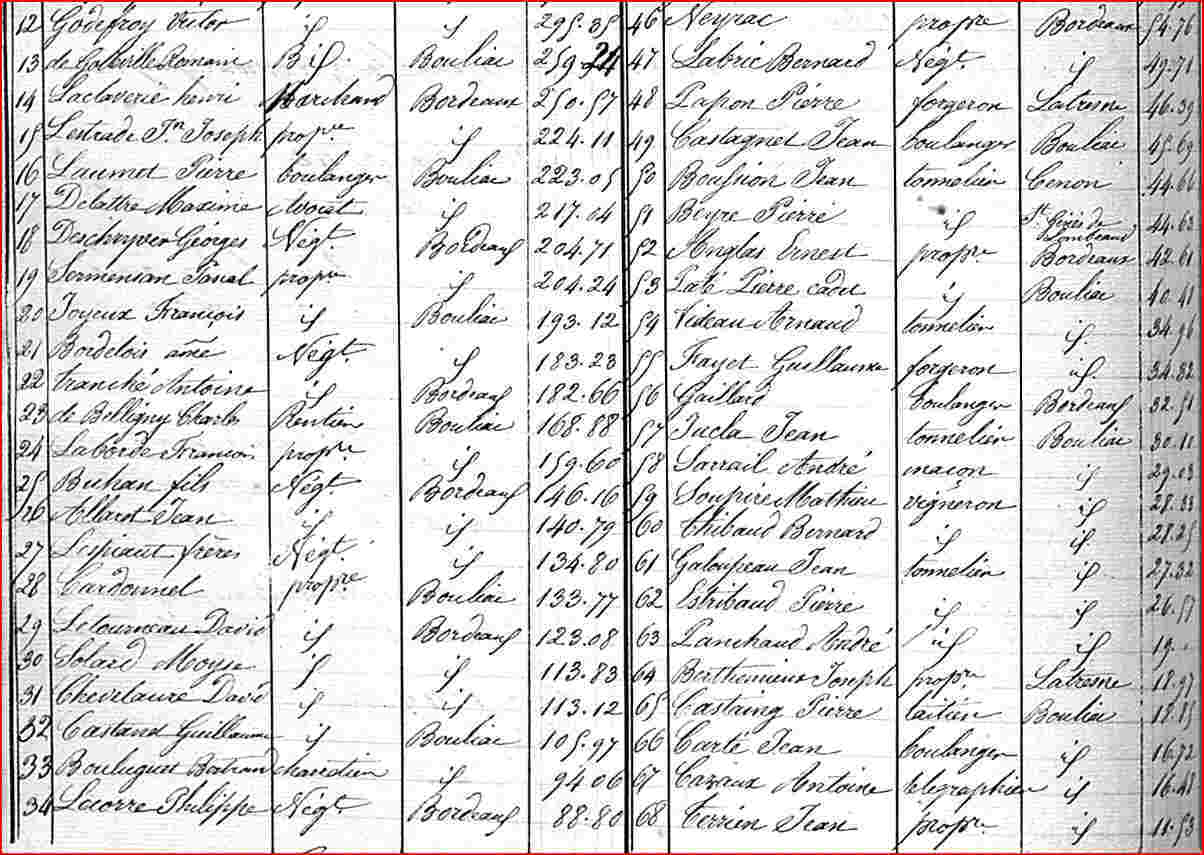 12 Godefroy Victor id id 295.35
13 de Romain Bouliac 259
14 Laclaverie henri Marchand Bordeaux 250.57
15 Lestrade Jn Joseph propre id 224.11
16 Laumet Pierre boulanger Bouliac 223.05
17 Delattre Maxime Avocat id 217.04
18 Deschryver Georges Négt. Bordeaux 204.71
19 propre id 204.24
20 Joyeux François id Bouliac 193.12
21 Bordelois aîné Négt. id 183.23
22 tranché Antoine id Bordeaux 182.66
23 de Bolligny Charles Rentier Bouliac 168.88
24 Laborde François propre id 159.60
25 Buhan fils Négt. Bordeaux 146.16
26 Allard Jean id id 140.79
27 Lespiaut frères Négt. id 134.80
28 Cardonnel propre Bouliac 133.77
29 Letourneau David id Bordeaux 123.08
30 Solard Moyse id id 113.83
31 David id id 113.12
32 Castand Guillaume id Bouliac 105.97
33 Bertrand id 94.06
34 Lacorre Philippe Négt Bordeaux 88.80
46 Neyrac propre Bordeaux 54.76
47 Labric Bernard Négt. id 49.71
48 Papon Pierre forgeron Latresne 46.39
49 Castagnet Jean boulanger Bouliac 45.69
50 Jean tonnelier Cenon 44.66
51 Beyre Pierre id St. de 44.63
52 Anglas Ernest propre Bordeaux 42.61
53 Paté Pierre cadet id Bouliac 40.41
54 Videau Arnaud tonnelier id 34.96
55 Fayet Guillaume forgeron id 34.82
56 Gaillard boulanger Bordeaux 32.51
57 Jucla Jean tonnelier Bouliac 30.11
58 Sarrail André maçon id
59 Soupire Mathieu vigneron id 28.33
60 Thibaud Bernard id id 28.25
61 Galoupeau Jean tonnelier id 27.32
62 Estribaud Pierre id id 26.59
63 Panchaud André id id 19.
64 Joseph propre Latresne 18.97
65 Castaing Pierre laitier Bouliac 18.15
66 Carté Jean boulanger id 16.72
67 Cazaux Antoine telegraphier id 16.41
68 Terrien Jean propre id 11.53